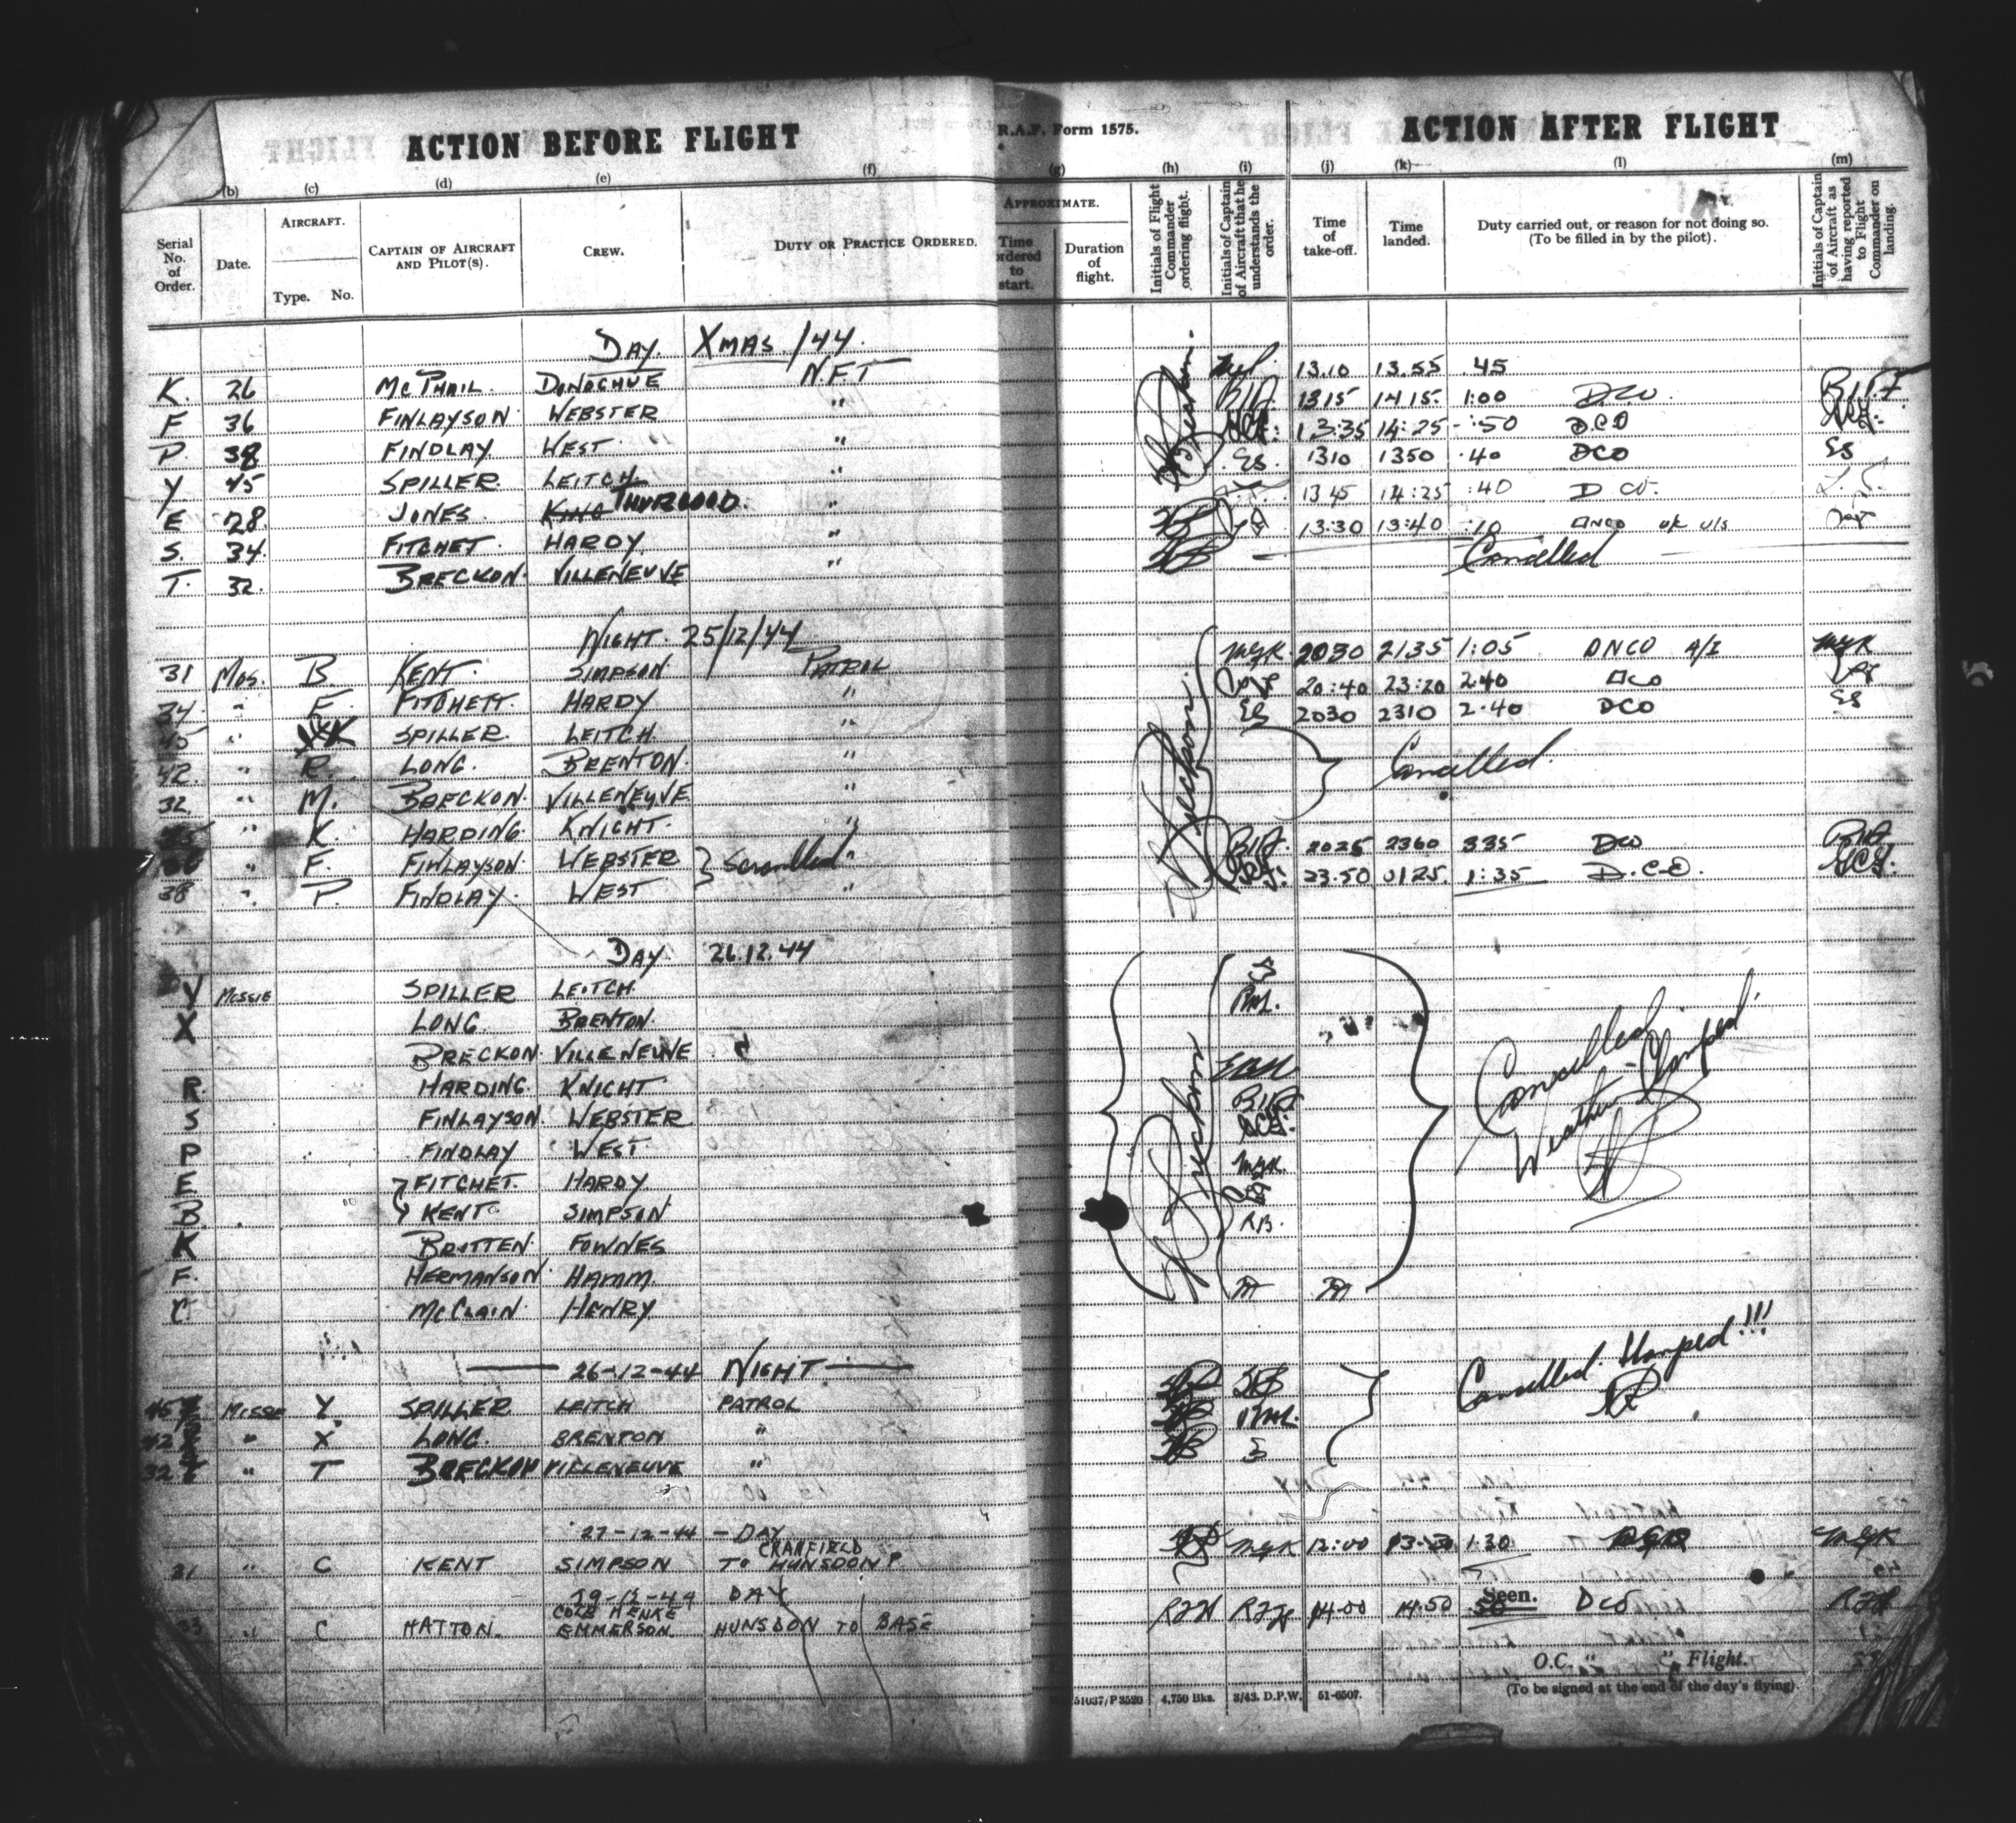 ACTION BEFORE FLIGHT R.A.F. Form 1575. ACTION AFTER FLIGHT
(b) (c) (d) (e) (f) (g) (h) (i) (j) (k) (l) (m)
Serial No. of Order. Date. AIRCRAFT. Type. No. CAPTAIN OF AIRCRAFT AND PILOT(S). CREW. DUTY OR PRACTICE ORDERED. APPROXIMATE. Time ordered to start. Duration of flight. Initials of Flight Commander ordering flight. Initials of Captain of Aircraft that he understands the order. Time of take-off. Time landed. Duty carried out, or reason for not doing so. (To be filled in by the pilot). Initials of Captain of Aircraft as having reported to Flight Commander on landing.
DAY. XMAS /44.
K. 26 MCPHAIL. DONAGHUE N.F.T 13.10 13.55 .45
F 36 FINLAYSON WEBSTER " 1315 1415. 1:00 DCO
P. 38 FINDLAY WEST " 13:35 14:25 :50 D.CO
Y 45 SPILLER LEITCH " ES. 1310 1350 .40 DCO ES
E 28 JONES KING THURGOOD. " 1345 14:25 :40 D CO.
S. 34. FITCHET. HARDY " 13:30 13:40 :10 DNCO u/s
T. 32. BRECKON. VILLENEUVE " Cancelled
NIGHT. 25/12/44
31 Mos. B KENT. SIMPSON PATROL MGK 2030 2135 1:05 DNCO A/I MGK
34 " E FITCHETT. HARDY " 20:40 23:20 2:40 DCO
45 " K SPILLER. LEITCH " ES 2030 2310 2.40 DCO ES
42. " R. LONG. BRENTON. " Cancelled.
32 " M. BRECKON. VILLENEUVE "
" K. HARDING. KNIGHT. "
36 " F. FINLAYSON. WEBSTER } Scrambled " 2025 2360 335 DCO
38 " P. FINDLAY WEST " 23.50 0125. 1:35 D.C.O.
DAY. 26.12.44
Y MOSSIE SPILLER LEITCH. ES
X LONG. BRENTON. RML.
BRECKON. VILLENEUVE
R. HARDING. KNIGHT.
S FINLAYSON. WEBSTER
P FINDLAY WEST.
E FITCHET. HARDY MGK.
B. KENT SIMPSON
K BRITTEN. FOWNES RB.
F. HERMANSON HAMM
C McCLAIN. HENRY
Cancelled Weather - Clamped.
26-12-44 NIGHT
45 MOSSE Y. SPILLER LEITCH PATROL
42 " X LONG. BRENTON " RML.
32 " T BRECKON VILLENEUVE "
Cancelled. Clamped!!!
27-12-44 - DAY
31 " C KENT SIMPSON CRANFIELD TO HUNSDON MGK 12:00 13:30 1.30 MGK
29-12-44 DAY
33 " C HATTON. COLE HENKE EMMERSON. HUNSDON TO BASE RJH RJH 14.00 14.50 .50 DCO RJH
Seen.
O.C. " " Flight.
(To be signed at the end of the day's flying).
51037/P3520 4,750 Bks. 3/43. D.P.W. 51-6507.